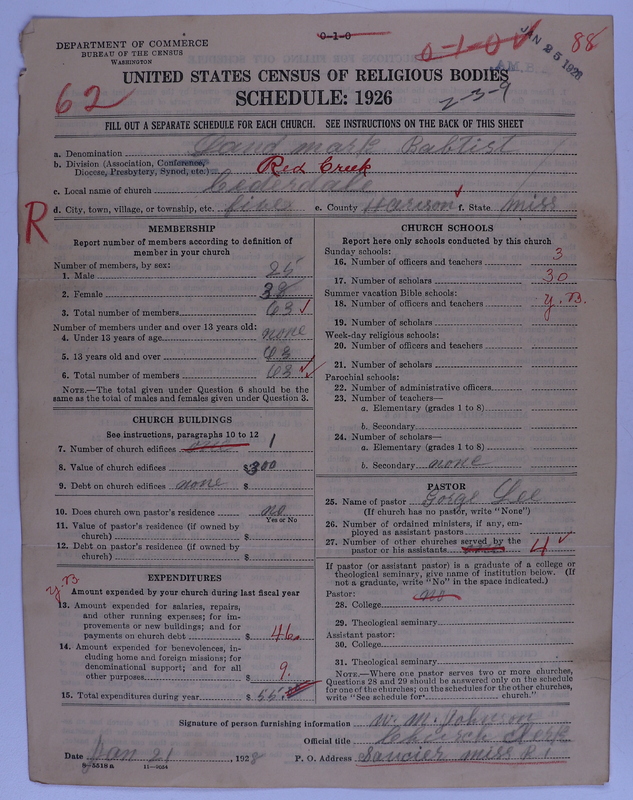 0-1-0
DEPARTMENT OF COMMERCE
BUREAU OF THE CENSUS
WASHINGTON
0-1-0 ✓
JAN 25 1928
88
UNITED STATES CENSUS OF RELIGIOUS BODIES
62
SCHEDULE: 1926
2-3-9
FILL OUT A SEPARATE SCHEDULE FOR EACH CHURCH. SEE INSTRUCTIONS ON THE BACK OF THIS SHEET
a. Denomination Land mark Baptist
b. Division (Association, Conference, Diocese, Presbytery, Synod, etc.) Red Creek
c. Local name of church Cederdale
d. City, town, village, or township, etc. e. County Harison ✓ f. State Miss
R
MEMBERSHIP
Report number of members according to definition of
member in your church
Number of members, by sex:
1. Male 25
2. Female 38
3. Total number of members 63 ✓
Number of members under and over 13 years old:
4. Under 13 years of age none
5. 13 years old and over 63
6. Total number of members 63 ✓
NOTE.—The total given under Question 6 should be the
same as the total of males and females given under Question 3.
CHURCH BUILDINGS
See instructions, paragraphs 10 to 12
7. Number of church edifices one 1
8. Value of church edifices $300
9. Debt on church edifices none $
10. Does church own pastor's residence no
Yes or No
11. Value of pastor's residence (if owned by
church) $
12. Debt on pastor's residence (if owned by
church) $
y.B.
EXPENDITURES
Amount expended by your church during last fiscal year
13. Amount expended for salaries, repairs,
and other running expenses; for im-
provements or new buildings; and for
payments on church debt $ 46.
14. Amount expended for benevolences, in-
cluding home and foreign missions; for
denominational support; and for all
other purposes $ 9.
15. Total expenditures during year $ 55.
CHURCH SCHOOLS
Report here only schools conducted by this church
Sunday schools:
16. Number of officers and teachers 3
17. Number of scholars 30
Summer vacation Bible schools:
18. Number of officers and teachers y.B.
19. Number of scholars
Week-day religious schools:
20. Number of officers and teachers
21. Number of scholars
Parochial schools:
22. Number of administrative officers
23. Number of teachers—
a. Elementary (grades 1 to 8)
b. Secondary
24. Number of scholars—
a. Elementary (grades 1 to 8)
b. Secondary none
PASTOR
25. Name of pastor Gorge Lee
(If church has no pastor, write "None")
26. Number of ordained ministers, if any, em-
ployed as assistant pastors
27. Number of other churches served by the
pastor or his assistants 4 ✓
If pastor (or assistant pastor) is a graduate of a college or
theological seminary, give name of institution below. (If
not a graduate, write "No" in the space indicated.)
Pastor: no
28. College
29. Theological seminary
Assistant pastor:
30. College
31. Theological seminary
NOTE.—Where one pastor serves two or more churches,
Questions 28 and 29 should be answered only on the schedule
for one of the churches; on the schedules for the other churches,
write "See schedule for church."
Signature of person furnishing information W. M. Johnson
Official title Church Clerk
Date Jan 21, 1928 P. O. Address Saucier miss R 1
8—5518a 11—9034